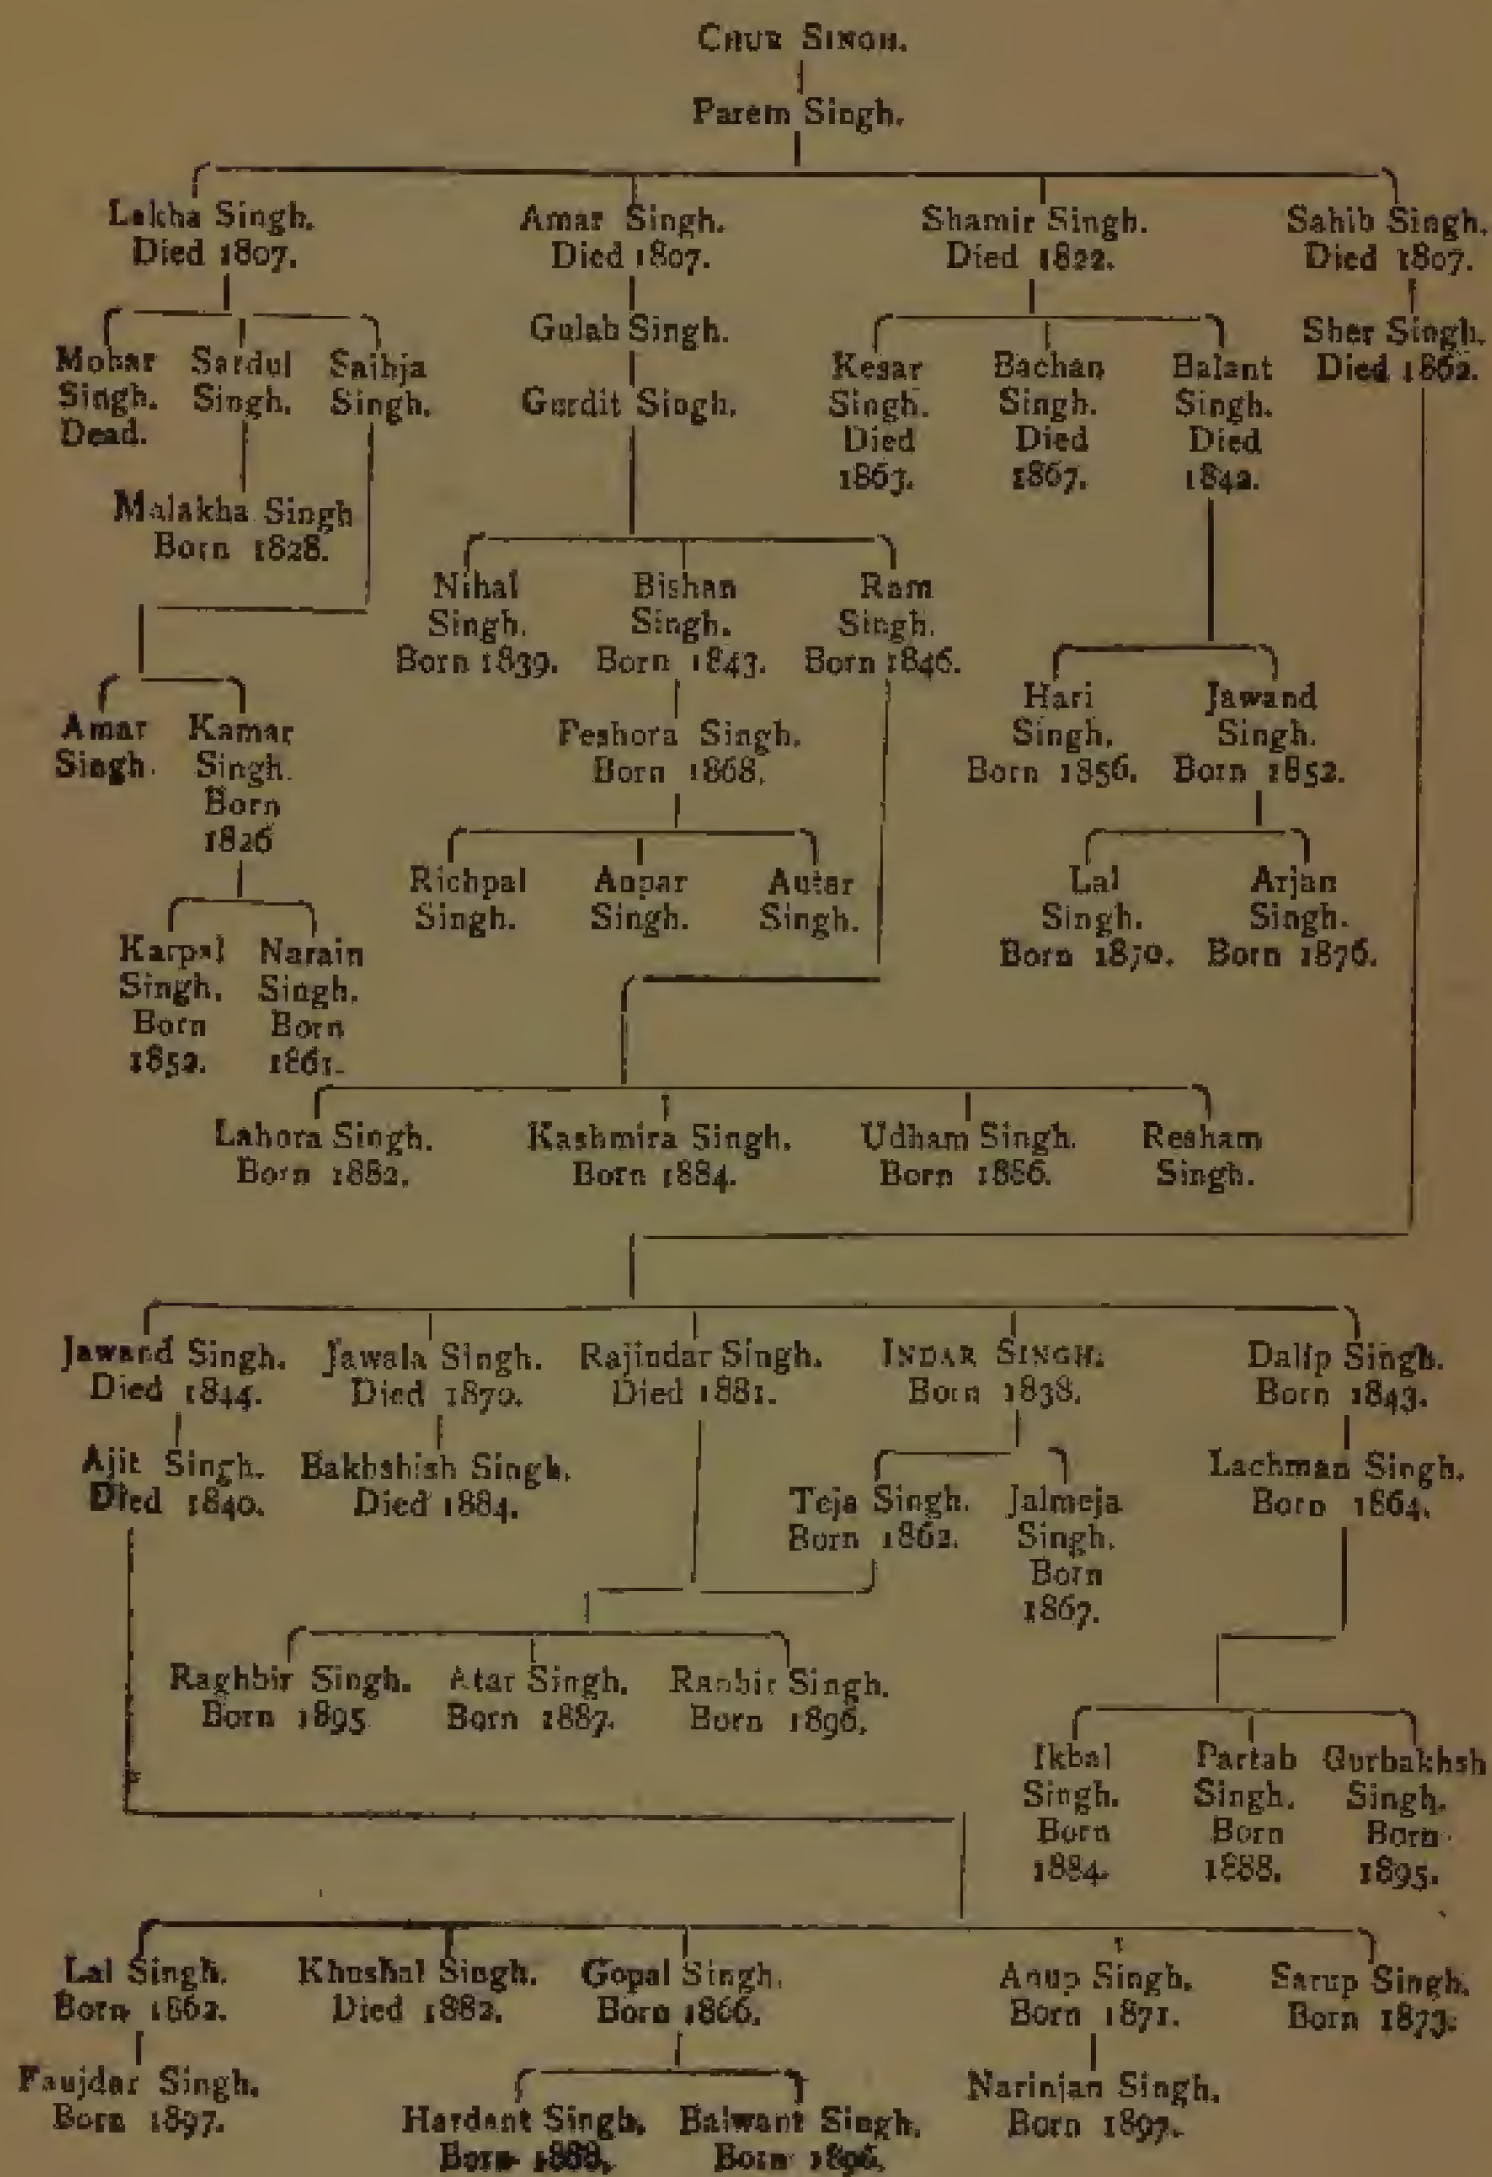 CHUR SINGH.
Parem Singh.
Lakha Singh.
Died 1807.
Amar Singh.
Died 1807.
Shamir Singh.
Died 1822.
Sahib Singh.
Died 1807.
Mohar
Singh.
Dead.
Sardul
Singh.
Saihja
Singh.
Gulab Singh.
Gurdit Singh.
Kesar
Singh.
Died
1863.
Bachan
Singh.
Died
1867.
Balant
Singh.
Died
1842.
Sher Singh.
Died 1862.
Malakha Singh
Born 1828.
Nihal
Singh.
Born 1839.
Bishan
Singh.
Born 1843.
Ram
Singh.
Born 1846.
Hari
Singh.
Born 1856.
Jawand
Singh.
Born 1852.
Amar
Singh.
Kamar
Singh.
Born
1826
Peshora Singh.
Born 1868.
Richpal
Singh.
Anpar
Singh.
Autar
Singh.
Lal
Singh.
Born 1870.
Arjan
Singh.
Born 1876.
Karpal
Singh.
Born
1852.
Narain
Singh.
Born
1861.
Lahora Singh.
Born 1882.
Kashmira Singh.
Born 1884.
Udham Singh.
Born 1886.
Resham
Singh.
Jawand Singh.
Died 1844.
Jawala Singh.
Died 1870.
Rajindar Singh.
Died 1881.
INDAR SINGH.
Born 1838.
Dalip Singh.
Born 1843.
Ajit Singh.
Died 1840.
Bakhshish Singh.
Died 1884.
Teja Singh.
Born 1862.
Jalmeja
Singh.
Born
1867.
Lachman Singh.
Born 1864.
Raghbir Singh.
Born 1895
Atar Singh.
Born 1887.
Ranbir Singh.
Born 1896.
Ikbal
Singh.
Born
1884.
Partab
Singh.
Born
1888.
Gurbakhsh
Singh.
Born
1895.
Lal Singh.
Born 1862.
Khushal Singh.
Died 1882.
Gopal Singh.
Born 1866.
Anup Singh.
Born 1871.
Sarup Singh.
Born 1873.
Faujdar Singh.
Born 1897.
Hardant Singh.
Born 1888.
Balwant Singh.
Born 1896.
Narinjan Singh.
Born 1897.